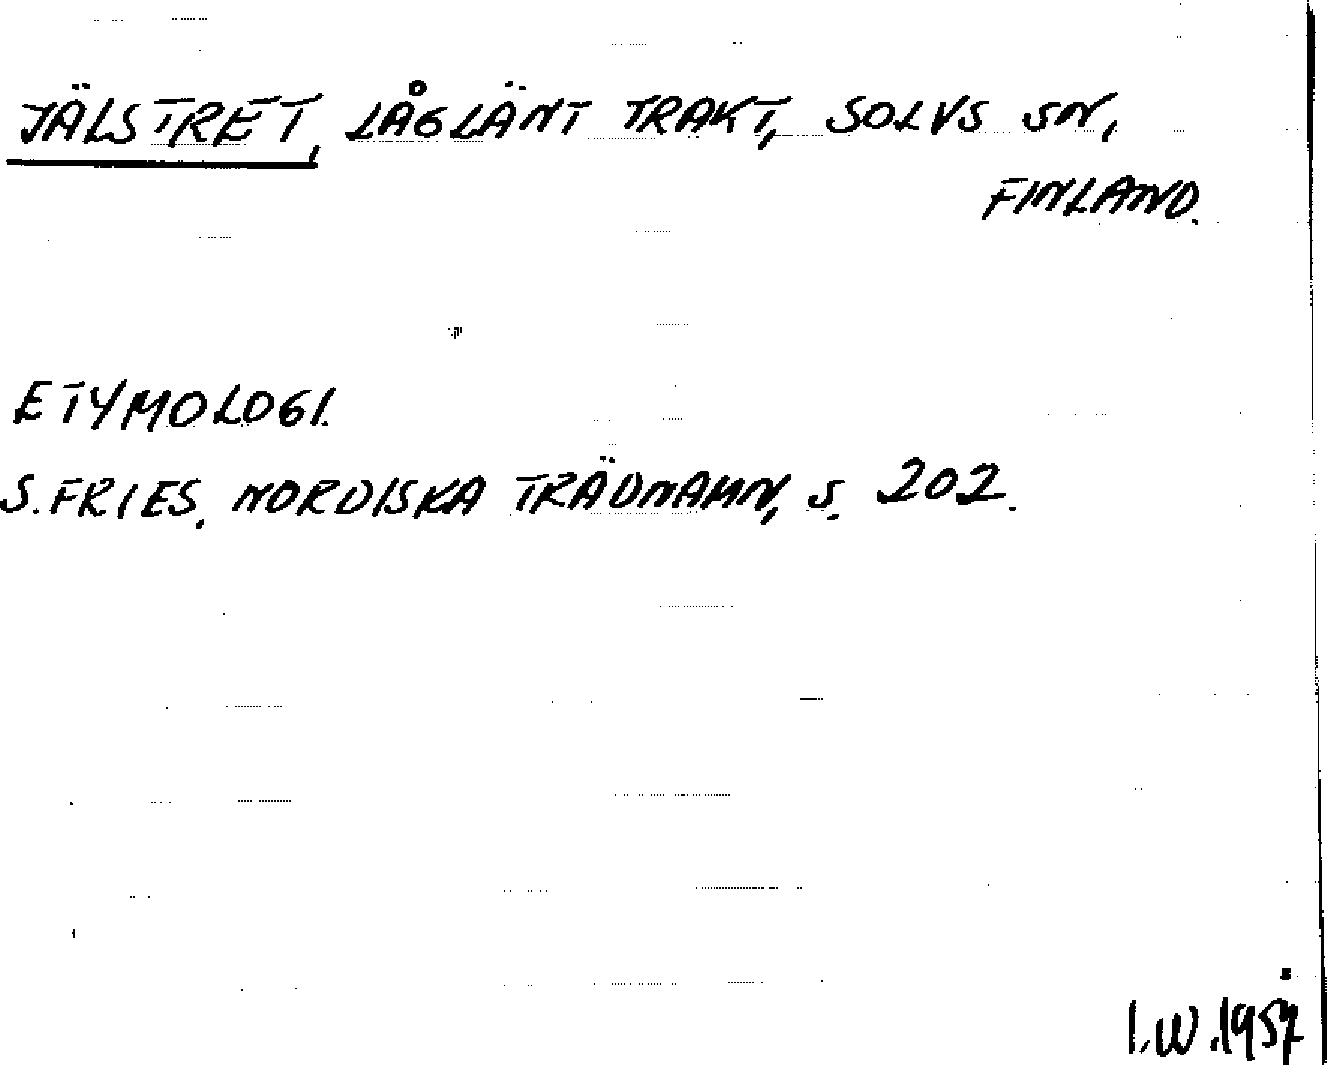 JÄLSTRET, LÅGLÄNT TRAKT, SOLVS SN,
FINLAND.
ETYMOLOGI.
S. FRIES, NORDISKA TRÄDNAMN, S. 202.
I.W. 1957